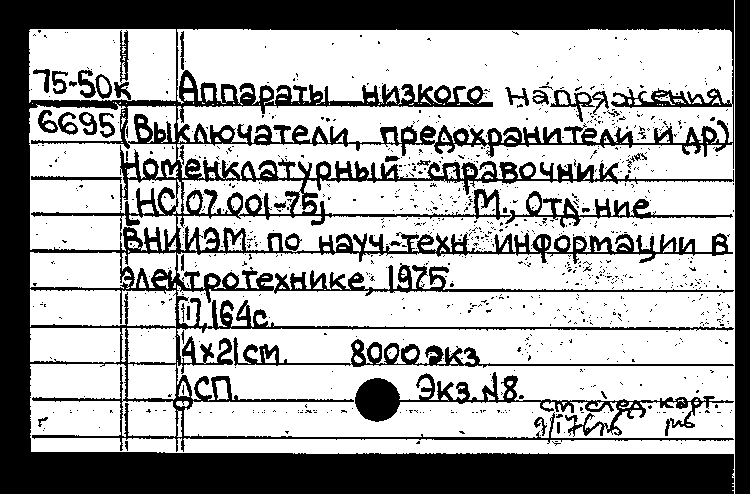 75-50к Аппараты низкого напряжения.
6695 (Выключатели, предохранители и др.)
Номенклатурный справочник.
[НС 07.001-75] М., Отд-ние
ВНИИЭМ по науч.-техн. информации в
электротехнике, 1975.
[1], 164с.
14х21 см. 8000 экз
ДСП. Экз. №8.
ст. след. карт.